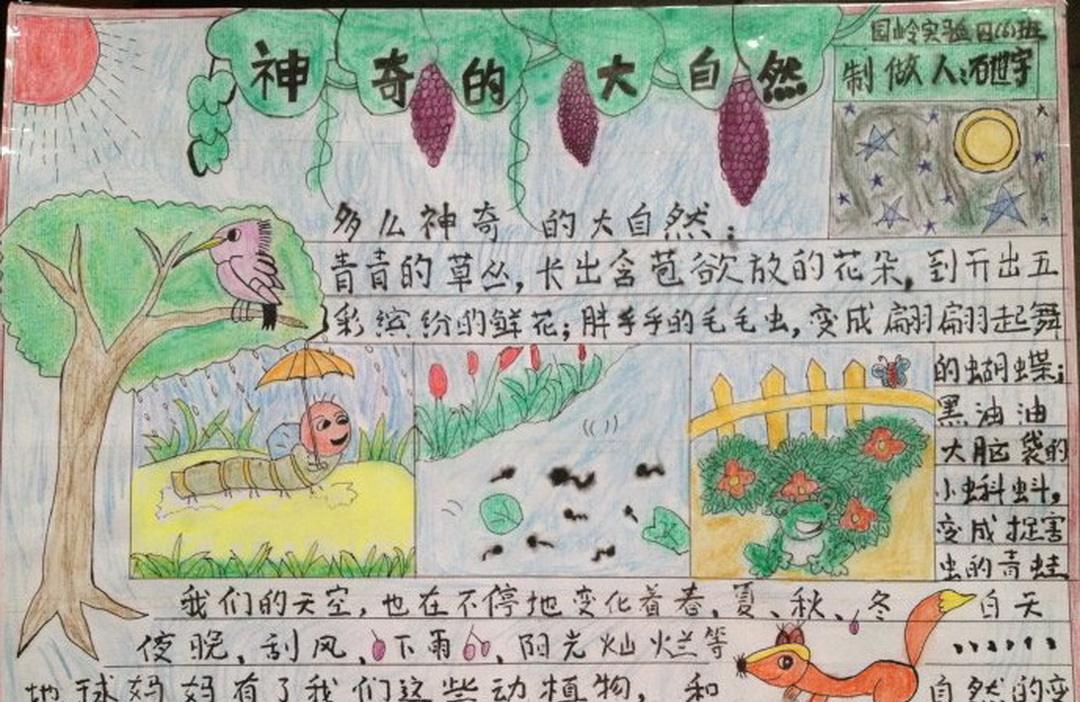 神奇的大自然
园岭实验四(6)班
制做人:石世宇
多么神奇的大自然:
青青的草丛,长出含苞欲放的花朵,到开出五
彩缤纷的鲜花;胖乎乎的毛毛虫,变成翩翩起舞
的蝴蝶;
黑油油
大脑袋的
小蝌蚪,
变成捉害
虫的青蛙
我们的天空,也在不停地变化着春、夏、秋、冬 白天
夜晚、刮风、下雨、阳光灿烂等......
地球妈妈有了我们这些动植物,和 自然的变